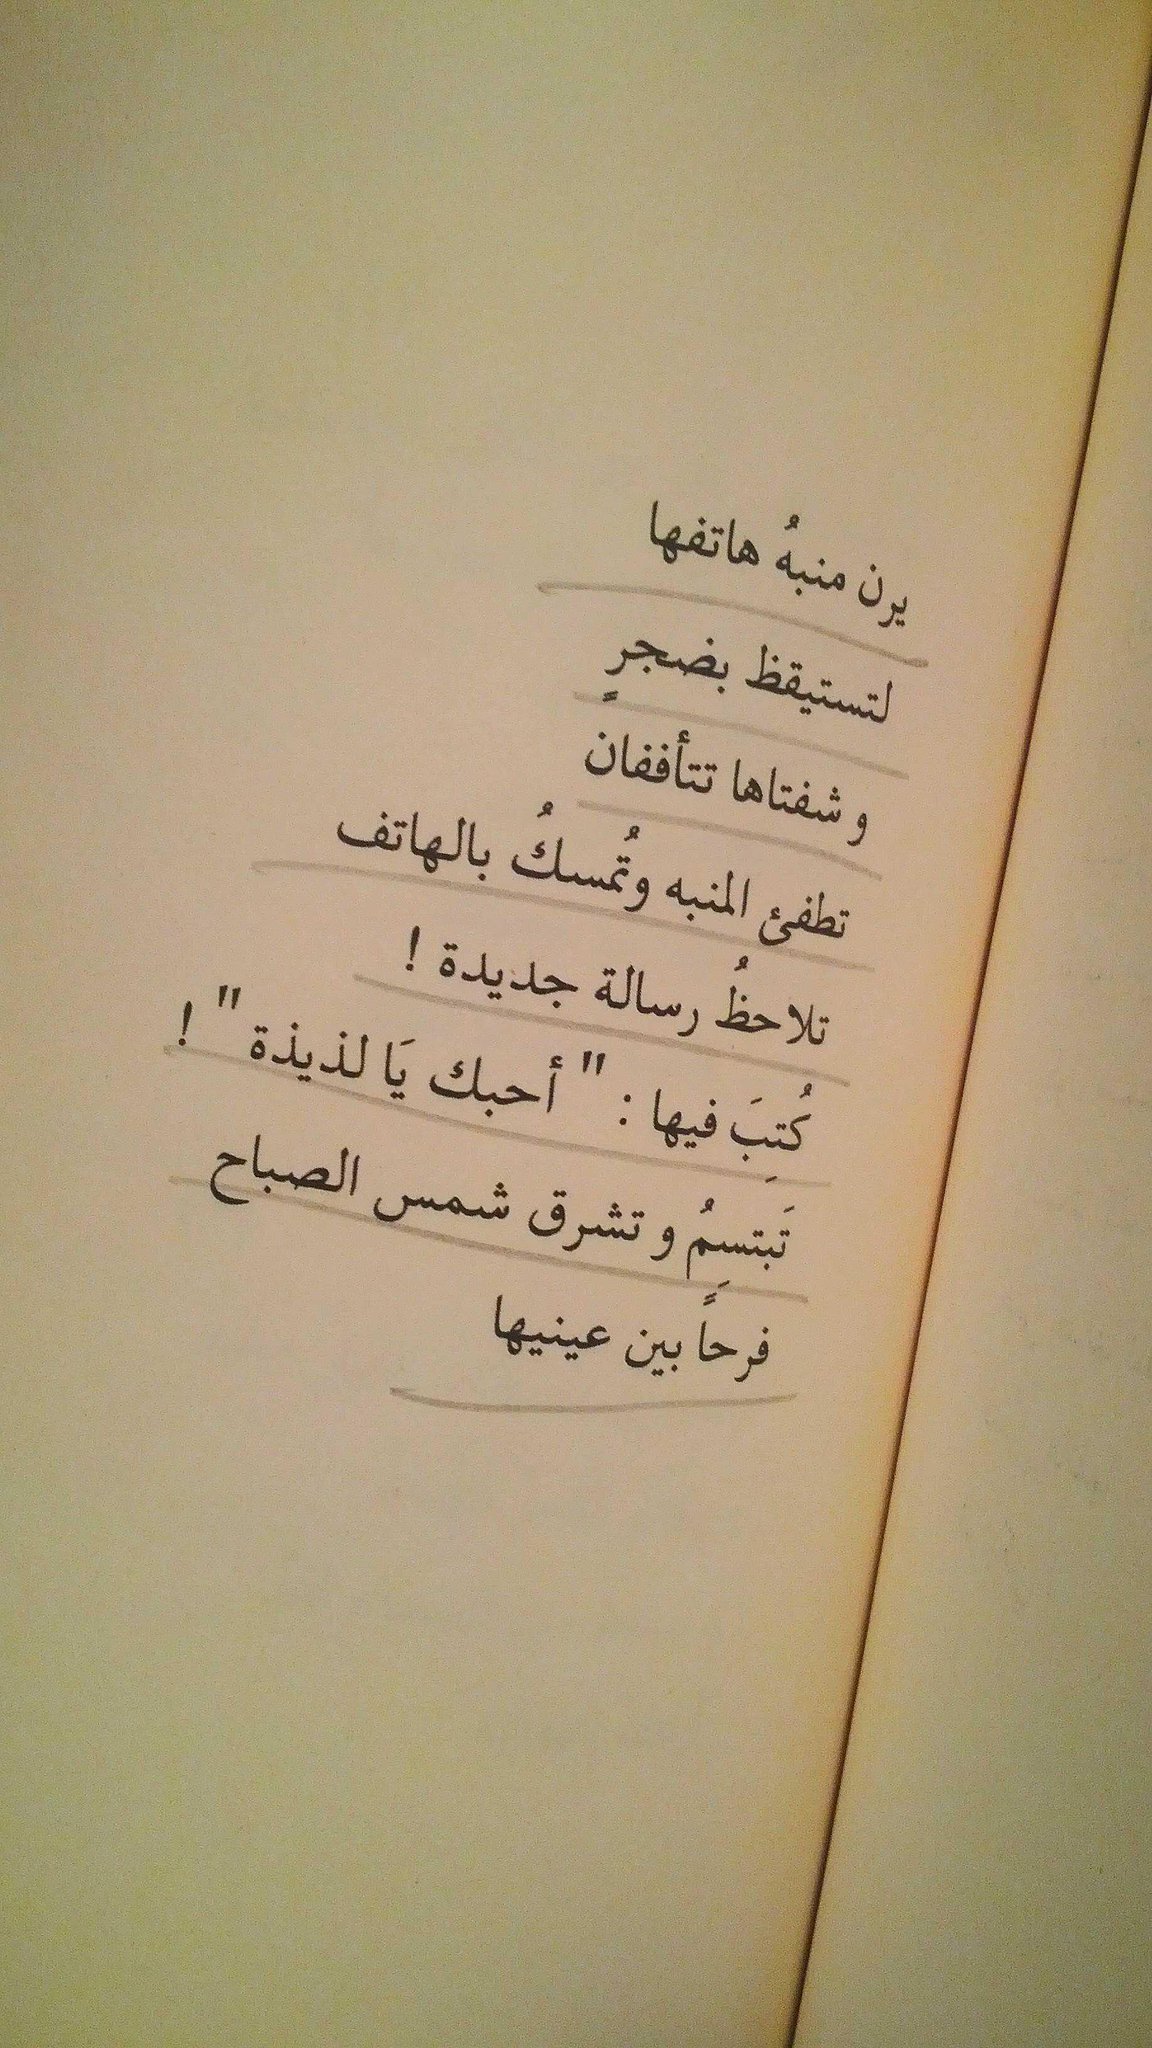 يرن منبهُ هاتفها
لتستيقظ بضجرٍ
و شفتاها تتأففان
تطفئ المنبه وتُمسكُ بالهاتف
تلاحظُ رسالة جديدة !
كُتِبَ فيها : " أحبك يَا لذيذة " !
تَبتسِمُ و تشرق شمس الصباح
فرحاً بين عينيها